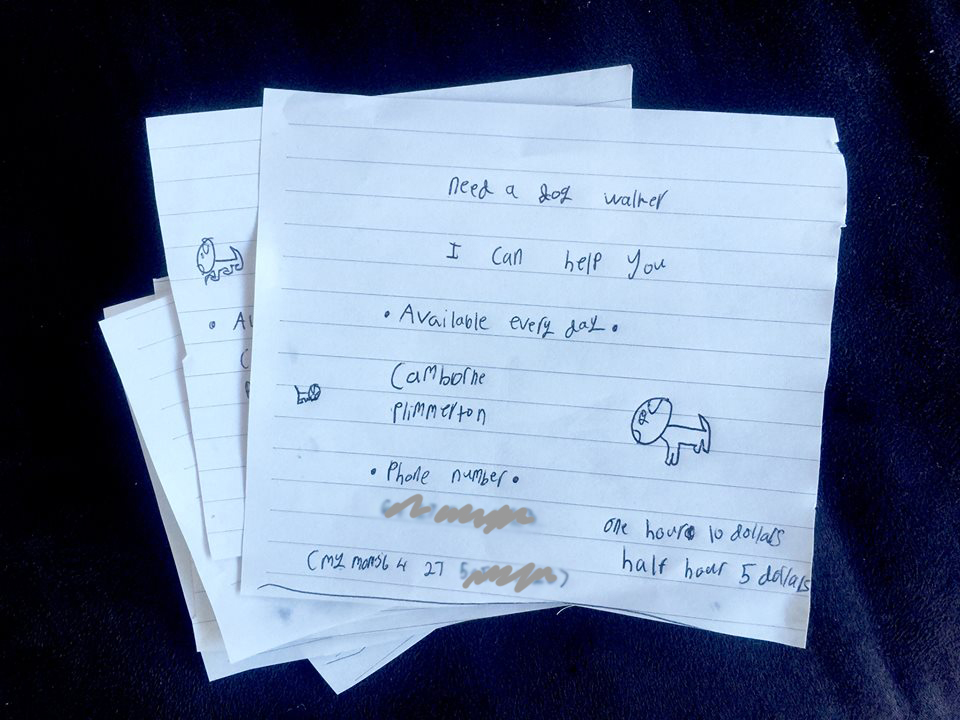 need a dog walker
I can help you
• Available every day •
Camborne
plimmerton
• Phone number •
one hour 10 dollars
half hour 5 dollars
(my
• Av
C
P